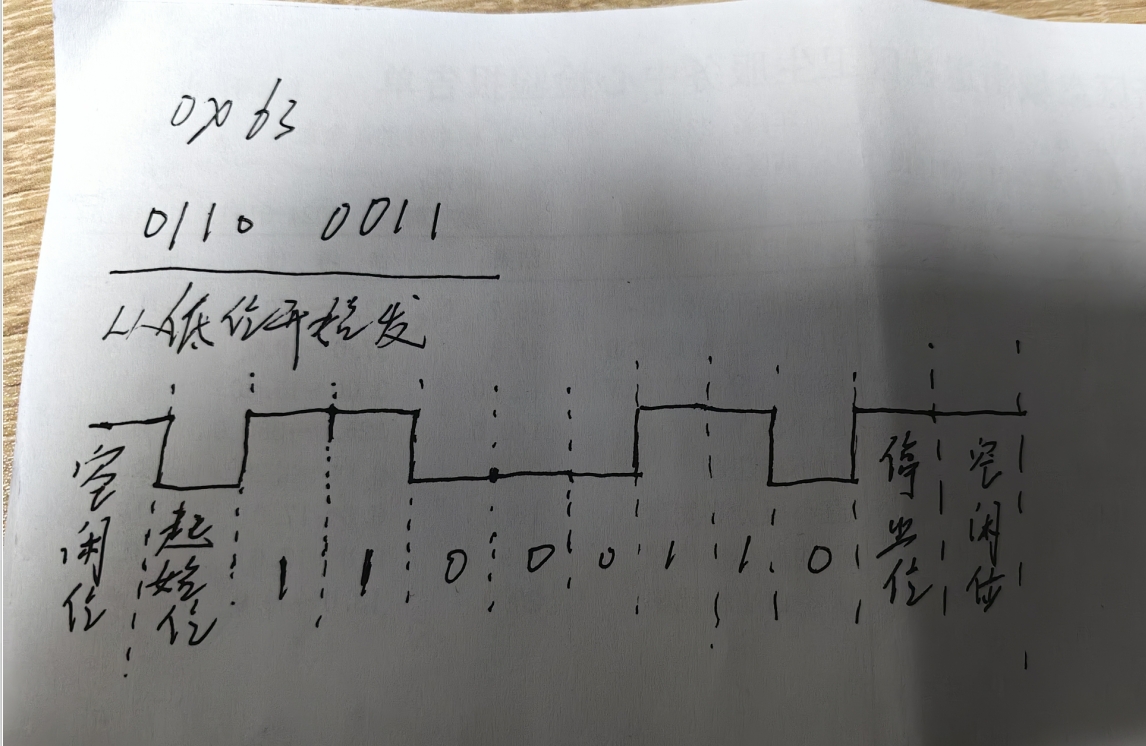 0x63
0110 0011
从低位开始发
空闲位 起始位 1 1 0 0 0 1 1 0 停止位 空闲位